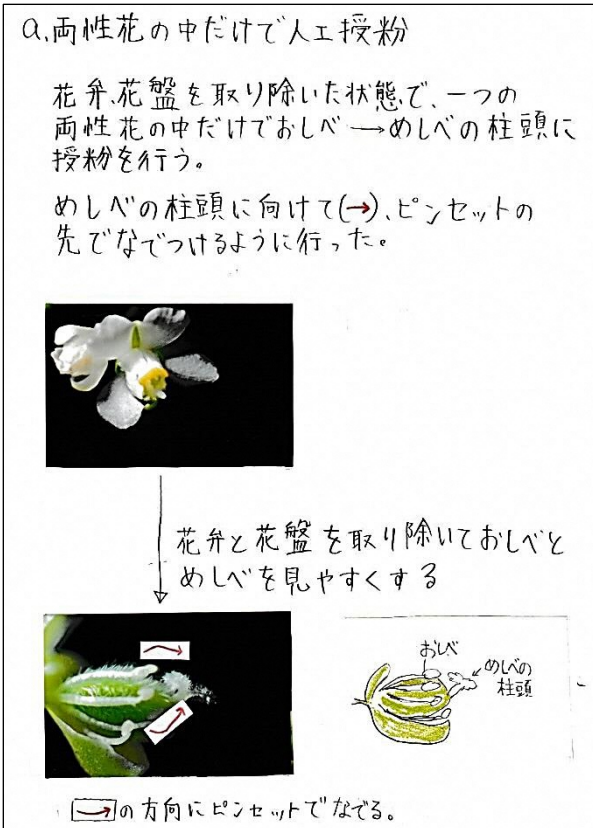 a.両性花の中だけで人工授粉
花弁、花盤を取り除いた状態で、一つの
両性花の中だけでおしべ→めしべの柱頭に
授粉を行う。
めしべの柱頭に向けて(→)、ピンセットの
先でなでつけるように行った。
花弁と花盤を取り除いておしべと
めしべを見やすくする
おしべ
めしべの
柱頭
→の方向にピンセットでなでる。